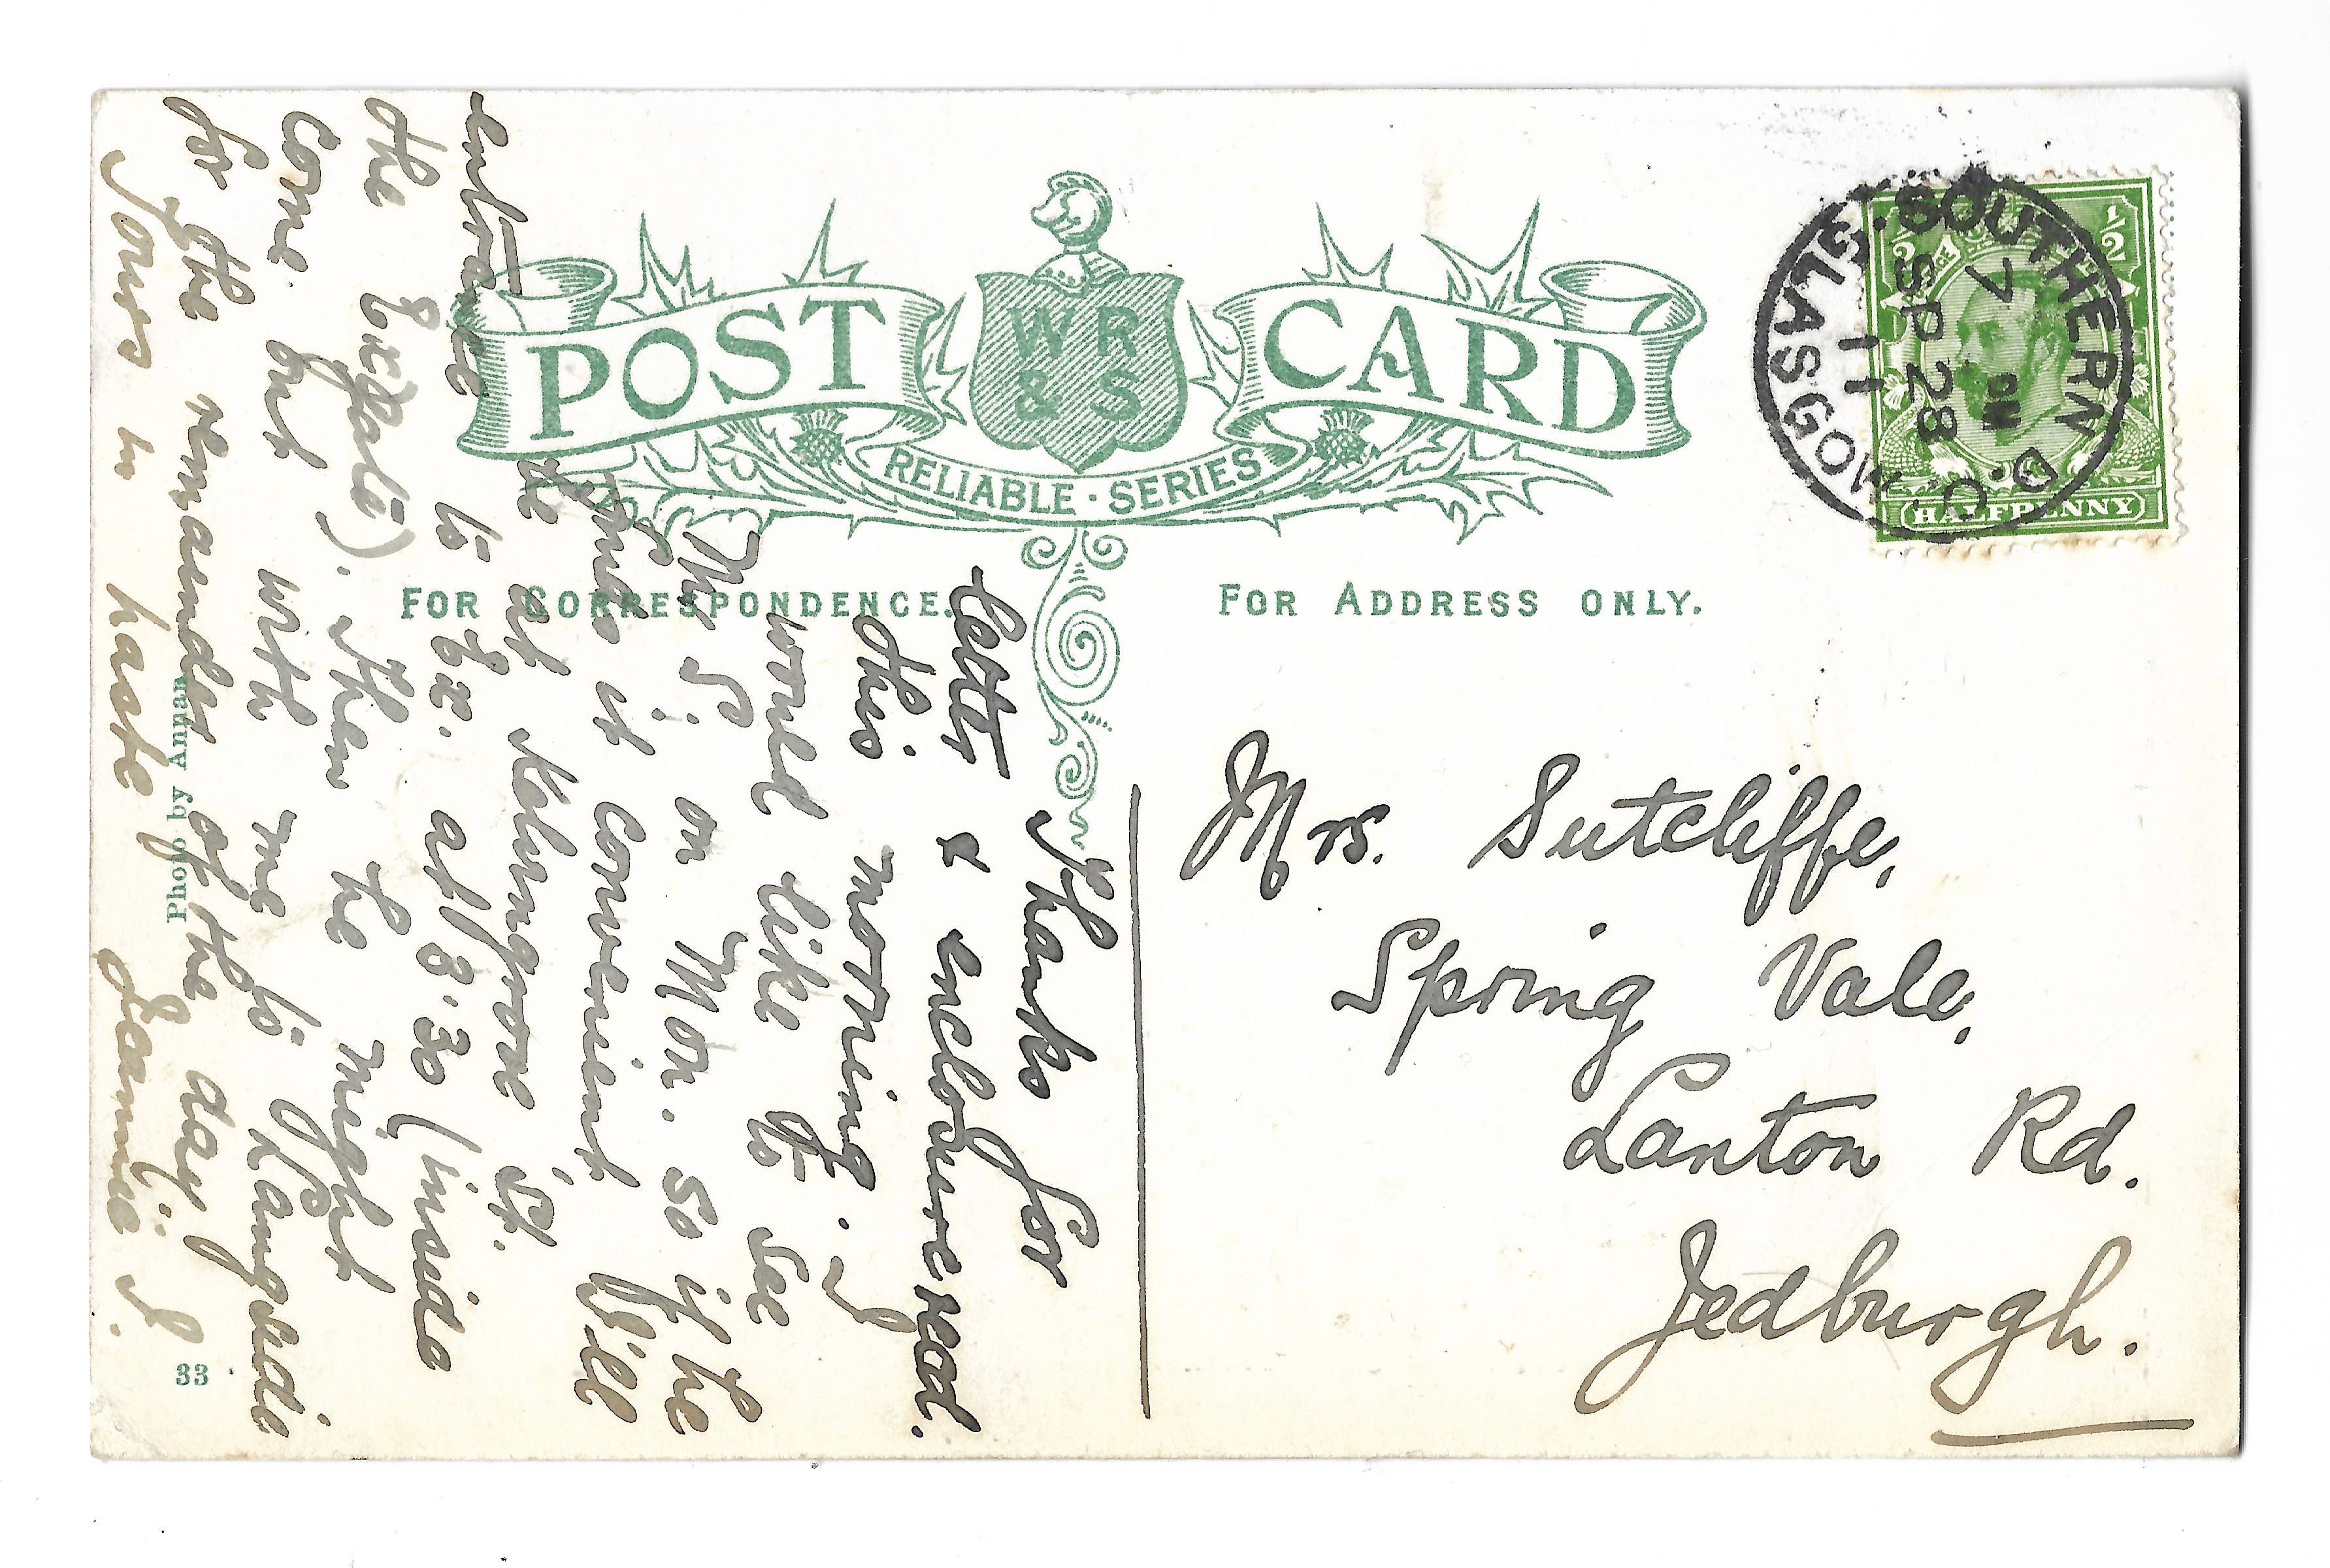 POST CARD
WR
& S
RELIABLE · SERIES
FOR CORRESPONDENCE.
FOR ADDRESS ONLY.
SOUTHERN D.O.
GLASGOW. S.
7 PM
SP 28
11
½ ½
HALFPENNY
Mrs. Sutcliffe,
Spring Vale,
Lanton Rd.
Jedburgh.
Thanks for
letter & enclosure recd.
this morning. I
would like to see
Mr S. on Mon. so if he
finds it convenient I'll
be at Kelvingrove St.
entrance to Ex. at 8.30 (inside
the Exhbn). Then he might
come out with me to Langside
for the remainder of the day.
Yours in haste Jeannie S.
Photo by Annan
33